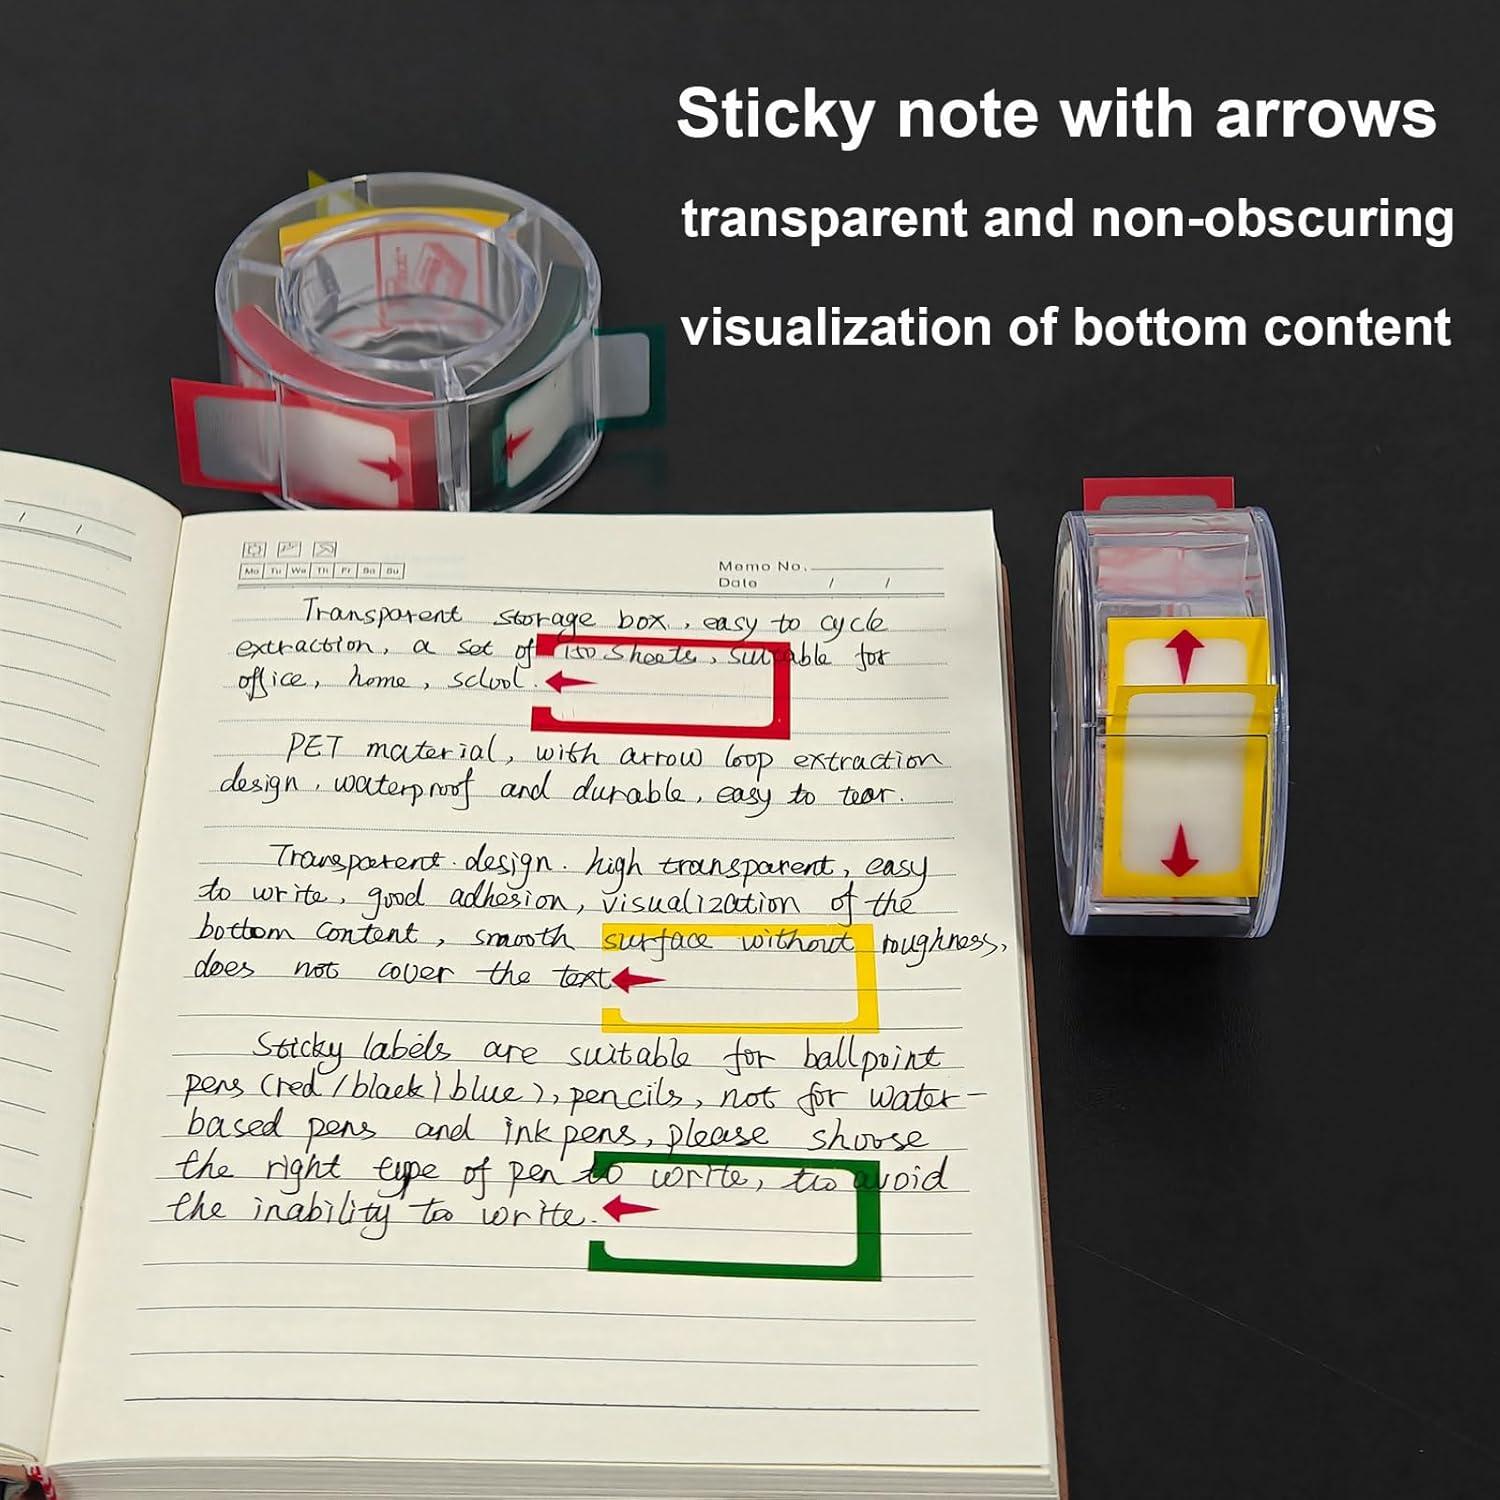 Sticky note with arrows
transparent and non-obscuring
visualization of bottom content
Mo Tu We Th Fr Sa Su
Memo No.
Date / /
Transparent storage box, easy to cycle
extraction, a set of 150 sheets, suitable for
office, home, sclool.
PET material, with arrow loop extraction
design, waterproof and durable, easy to tear.
Transparent design. high transparent, easy
to write, good adhesion, visualization of the
bottom content, smooth surface without roughness,
does not cover the text
Sticky labels are suitable for ballpoint
pens (red/black/blue), pencils, not for water-
based pens and ink pens, please shoose
the right type of pen to write, to avoid
the inability to write.